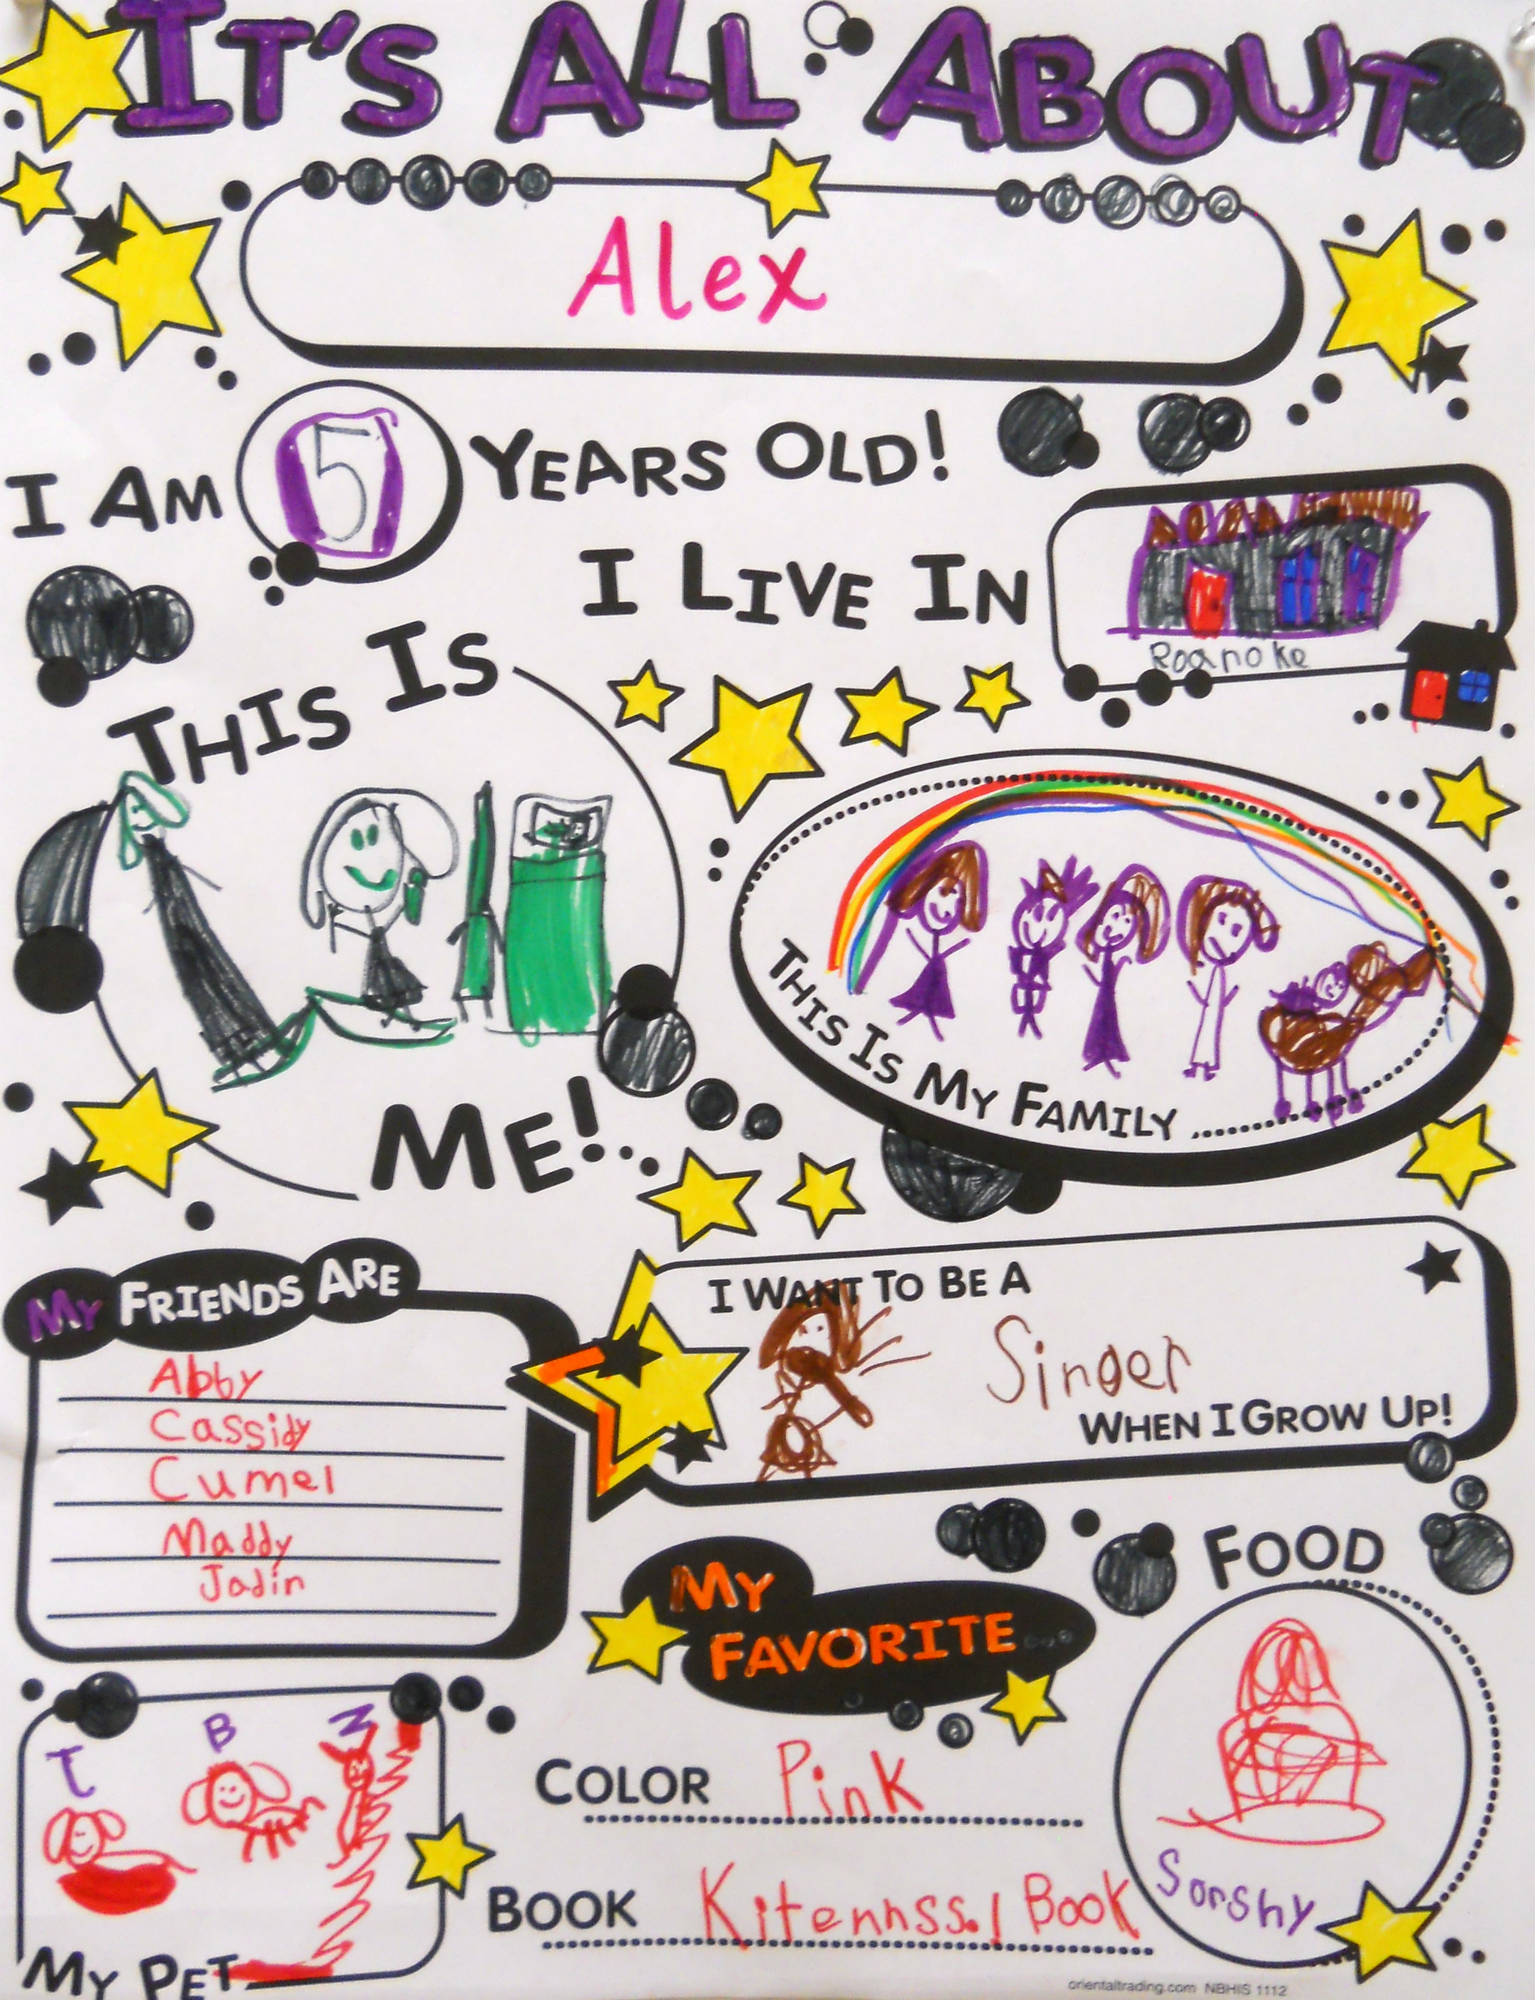 IT'S ALL ABOUT
Alex
I AM 5 YEARS OLD!
I LIVE IN
Roanoke
THIS IS
ME!
THIS IS MY FAMILY
MY FRIENDS ARE
Abby
Cassidy
Cumel
Maddy
Jadin
I WANT TO BE A
Singer
WHEN I GROW UP!
MY
FAVORITE...
FOOD
Sorshy
COLOR Pink
BOOK Kitennss. Book
T B N
MY PET
orientaltrading.com NBHIS 1112